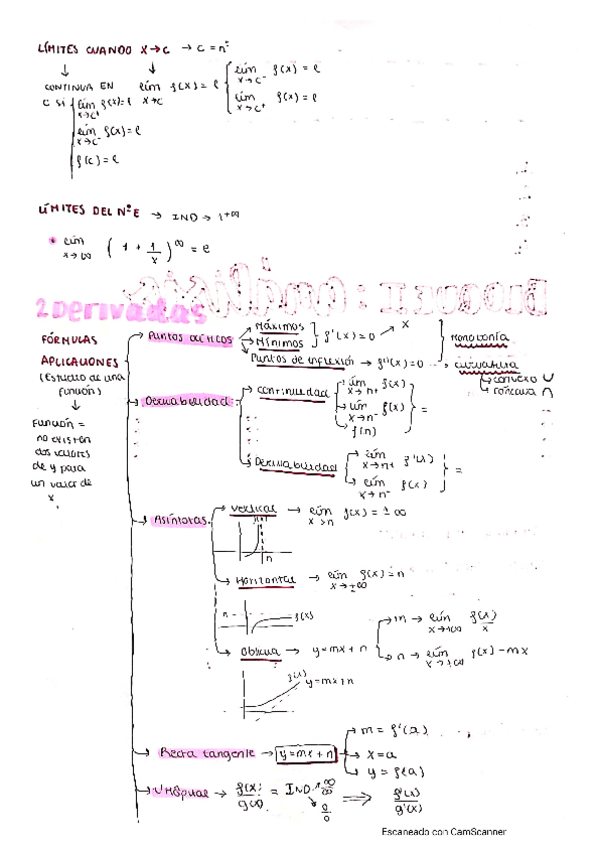 LÍMITES CUANDO X→C → C = nº
CONTINUA EN C si { lím x→c⁺ f(x) = l
lím x→c⁻ f(x) = l
f(c) = l
lím x→c f(x) = l { lím x→c⁻ f(x) = l
lím x→c⁺ f(x) = l
LÍMITES DEL Nº E → IND → 1^±∞
* lím x→∞ (1 + 1/x)^∞ = e
2 Derivadas
FÓRMULAS
APLICACIONES
(Estudio de una
función)
Función =
no existen
dos valores
de y para
un valor de
x
Puntos críticos → Máximos
→ Mínimos } f'(x) = 0 → x
Puntos de inflexión → f''(x) = 0
Monotonía
curvatura
convexo ∪
cóncava ∩
Derivabilidad:
continuidad { lím x→n+ f(x)
lím x→n- f(x)
f(n) } =
Derivabilidad { lím x→n+ f'(x)
lím x→n- f(x) } =
Asíntotas
vertical → lím x→n f(x) = ±∞
n
Horizontal → lím x→±∞ f(x) = n
n
f(x)
Oblicua → y = mx + n
m → lím x→±∞ f(x)/x
n → lím x→±∞ f(x) - mx
f(x)
y = mx + n
Recta tangente → y = mx + n
m = f'(a)
x = a
y = f(a)
L'Hôpital → f(x)/g(x) = IND → ∞/∞
0/0
⇒ f'(x)/g'(x)
Escaneado con CamScanner